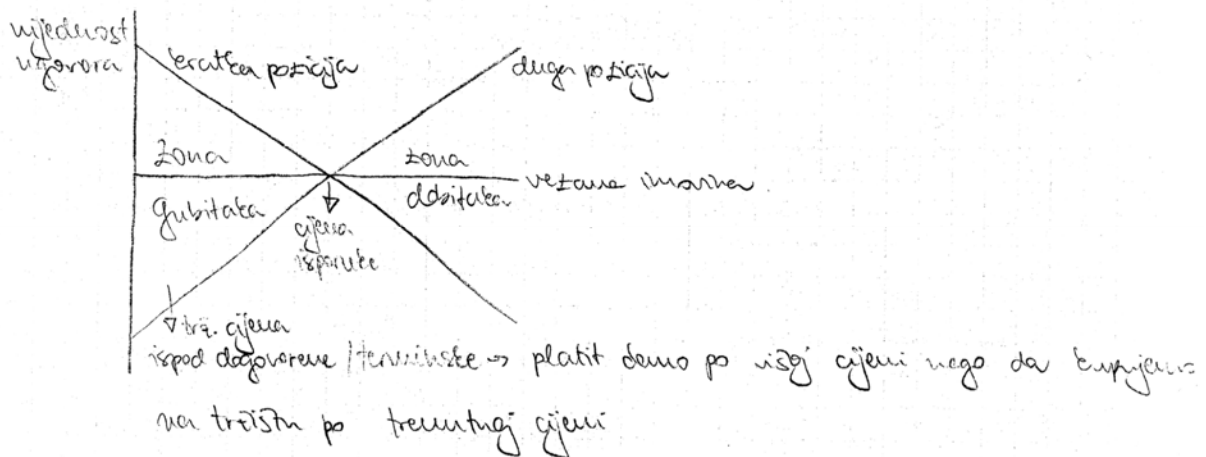 vrijednost
ugovora
kratka pozicija
duga pozicija
zona
gubitaka
zona
dobitaka
vezana imovina
cijena
isporuke
trž. cijena
ispod dogovorene / terminske → platit ćemo po višoj cijeni nego da kupujemo
na tržištu po trenutnoj cijeni